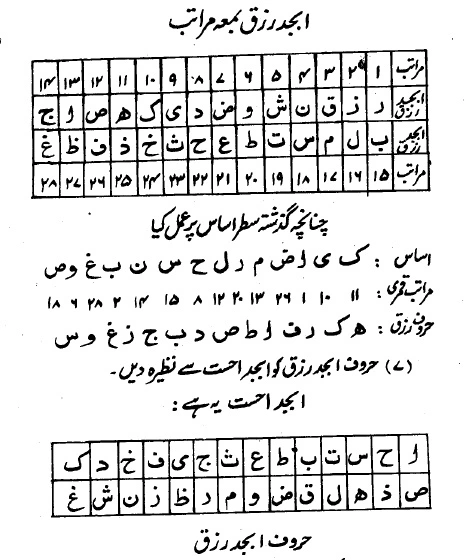 ابجد رزق بمعہ مراتب
مراتب ۱ ۲ ۳ ۴ ۵ ۶ ۷ ۸ ۹ ۱۰ ۱۱ ۱۲ ۱۳ ۱۴
ابجد رزق ر ز ق ن ش و ض د ی ک ھ ص ا ج
ابجد رزق ب ل م س ت ط ع ح ث خ ذ ف ظ غ
مراتب ۱۵ ۱۶ ۱۷ ۱۸ ۱۹ ۲۰ ۲۱ ۲۲ ۲۳ ۲۴ ۲۵ ۲۶ ۲۷ ۲۸
چنانچہ گذشتہ سطر اساس پر عمل کیا
اساس : ک ی ا ض م ر ل ح س ن ب غ و ص
مراتب قمری: ۱۱ ۱۰ ۱ ۲۶ ۱۳ ۲۰ ۱۲ ۸ ۱۵ ۱۴ ۲ ۲۸ ۶ ۱۸
حروف رزق: ھ ک ر ف ا ط ص د ب ج ز غ و س
(۷) حروف ابجد رزق کو ابجد احست سے نظیرہ دیں۔
ابجد احست یہ ہے:
ا ح س ت ب ط ع ث ج ی ف خ د ک
ص ذ ھ ل ق ض و م ر ظ ز ن ش غ
حروف ابجد رزق